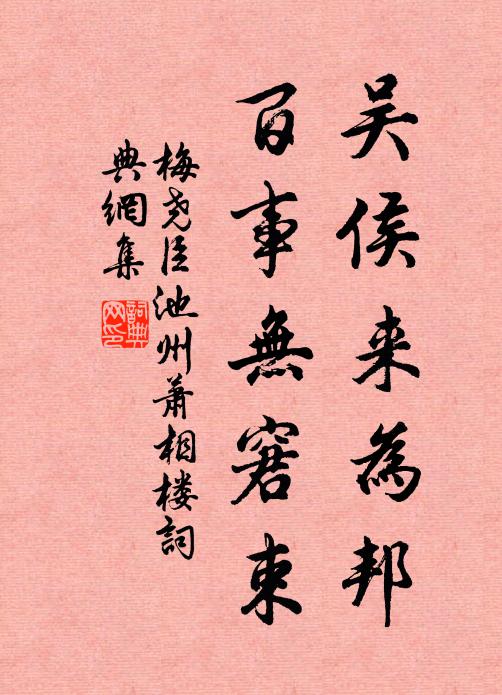 吴侯来為邦
百事無窘束
梅尧臣池州萧相楼詞
典網集
詞典
网印